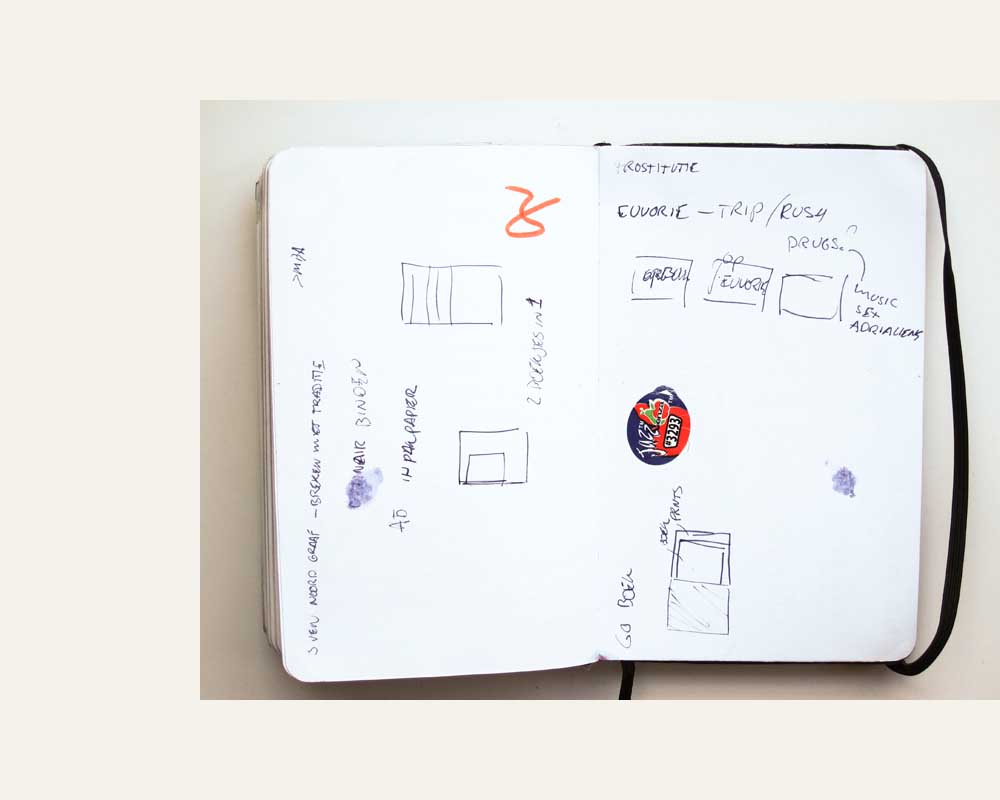 >MDA
SVEN NOORD GRAAF – BREKEN MET TRADITIE
BINAIR BINDEN
AD IN PAKPAPIER
2 BOEKJES IN 1
PROSTITUTIE
EUVORIE – TRIP / RUSH
DRUGS.
OP
EUVORIE
MUSIC
SEX
JAZZ
#3293
BOEK
PRNTS
GO BOEK